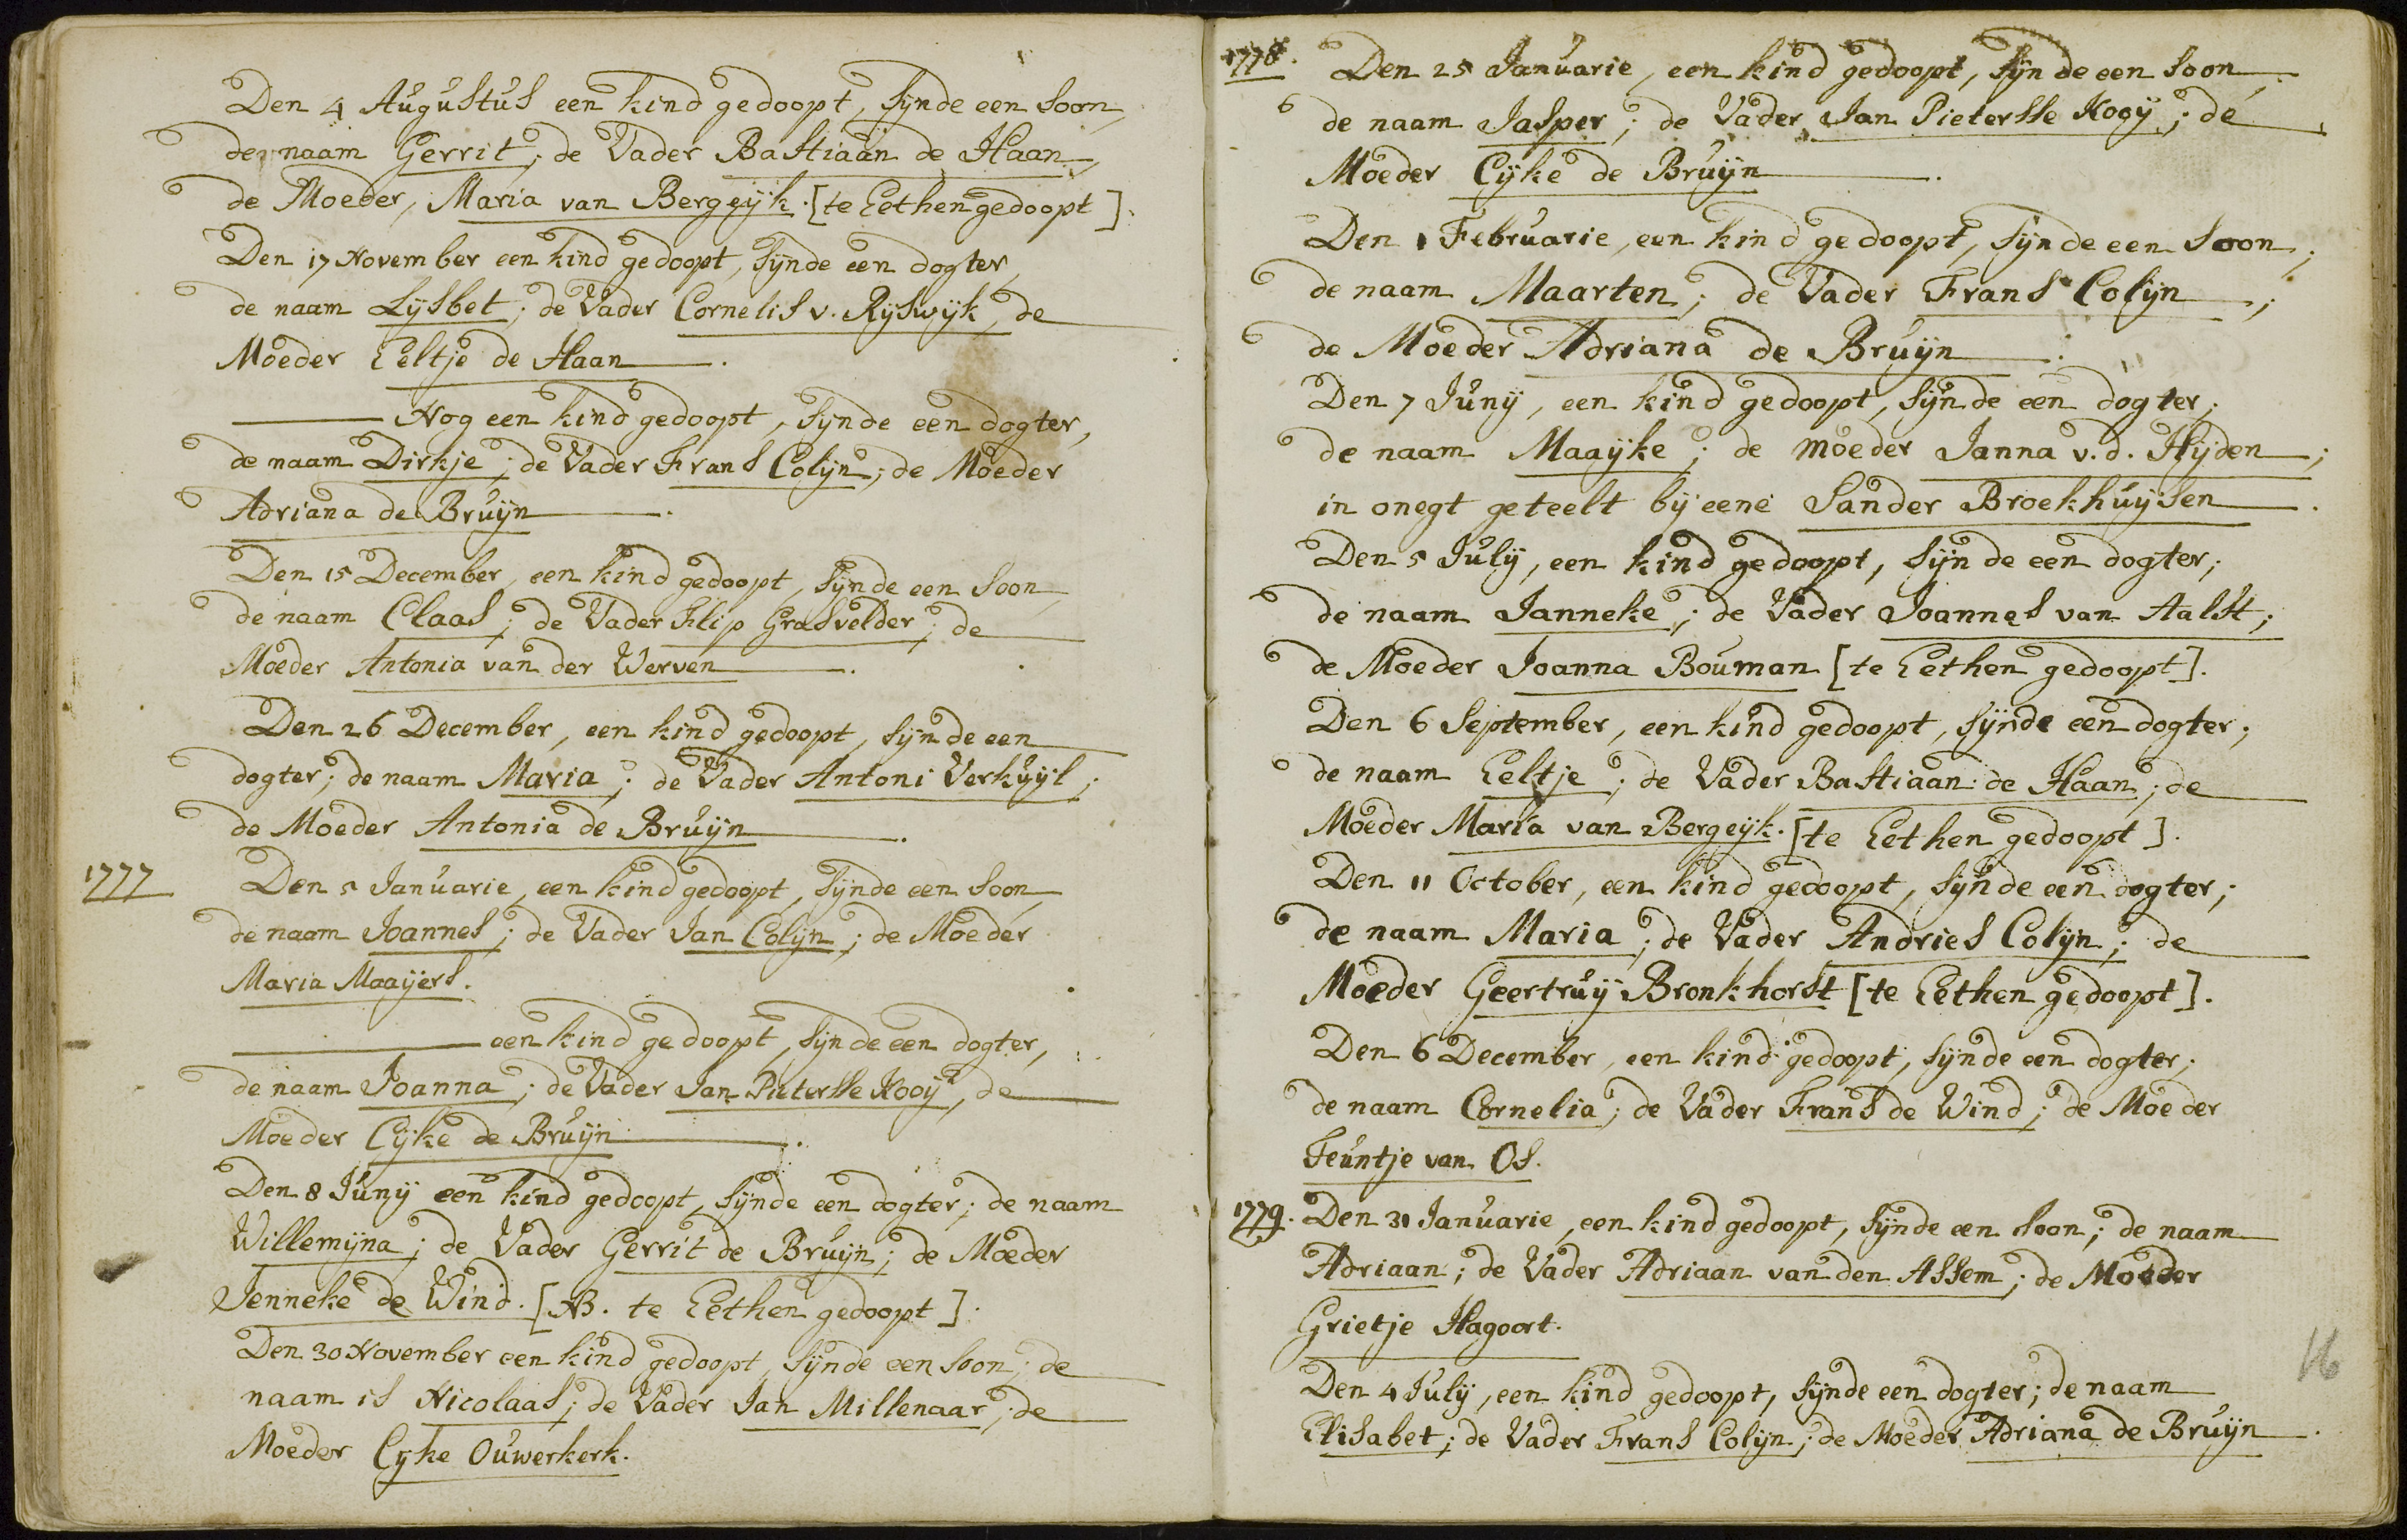 Den 4 Augustus een kind gedoopt, sijnde een soon,
de naam Gerrit; de Vader Bastiaan de Haan,
de Moeder, Maria van Bergeijk. [te Eethen gedoopt].
Den 17 November een kind gedoopt, sijnde een dogter,
de naam Lijsbet; de Vader Cornelis v. Rijswijk, de
Moeder Eeltje de Haan.
Nog een kind gedoopt, sijnde een dogter,
de naam Dirkje; de Vader Frans Colijn; de Moeder
Adriana de Bruijn.
Den 15 December, een kind gedoopt, sijnde een soon,
de naam Claas; de Vader Flip Grasvelder; de
Moeder Antonia van der Werven.
Den 26 December, een kind gedoopt, sijnde een
dogter; de naam Maria; de Vader Antoni Verkuijl;
de Moeder Antonia de Bruijn.
1777 Den 5 Januarie, een kind gedoopt, sijnde een soon,
de naam Joannes; de Vader Jan Colijn; de Moeder
Maria Maaijers.
een kind gedoopt, sijnde een dogter,
de naam Joanna; de Vader Jan Pietersse Kooij, de
Moeder Cijke de Bruijn.
Den 8 Junij een kind gedoopt, sijnde een dogter; de naam
Willemijna; de Vader Gerrit de Bruijn; de Moeder
Jenneke de Wind. [NB. te Eethen gedoopt].
Den 30 November een kind gedoopt, sijnde een soon; de
naam is Nicolaas; de Vader Jan Millenaar; de
Moeder Cijke Ouwerkerk.
1778. Den 25 Januarie, een kind gedoopt, sijnde een soon,
de naam Jasper; de Vader Jan Pietersse Kooij; de
Moeder Cijke de Bruijn.
Den 1 Februarie, een kind gedoopt, sijnde een soon;
de naam Maarten; de Vader Frans Colijn;
de Moeder Adriana de Bruijn.
Den 7 Junij, een kind gedoopt, sijnde een dogter;
de naam Maaijke; de moeder Janna v.d. Hijden;
in onegt geteelt bij eene Sander Broekhuijsen.
Den 5 Julij, een kind gedoopt, sijnde een dogter;
de naam Janneke; de Vader Joannes van Aalst;
de Moeder Joanna Bouman [te Eethen gedoopt].
Den 6 September, een kind gedoopt, sijnde een dogter;
de naam Eeltje; de Vader Bastiaan de Haan; de
Moeder Maria van Bergeijk. [te Eethen gedoopt].
Den 11 October, een kind gedoopt, sijnde een dogter;
de naam Maria; de Vader Andries Colijn; de
Moeder Geertruij Bronkhorst [te Eethen gedoopt].
Den 6 December, een kind gedoopt, sijnde een dogter;
de naam Cornelia; de Vader Frans de Wind; de Moeder
Teuntje van Os.
1779. Den 31 Januarie, een kind gedoopt, sijnde een soon; de naam
Adriaan; de Vader Adriaan van den Assem; de Moeder
Grietje Hagoort.
Den 4 Julij, een kind gedoopt, sijnde een dogter; de naam
Elisabet; de Vader Frans Colijn; de Moeder Adriana de Bruijn.
16